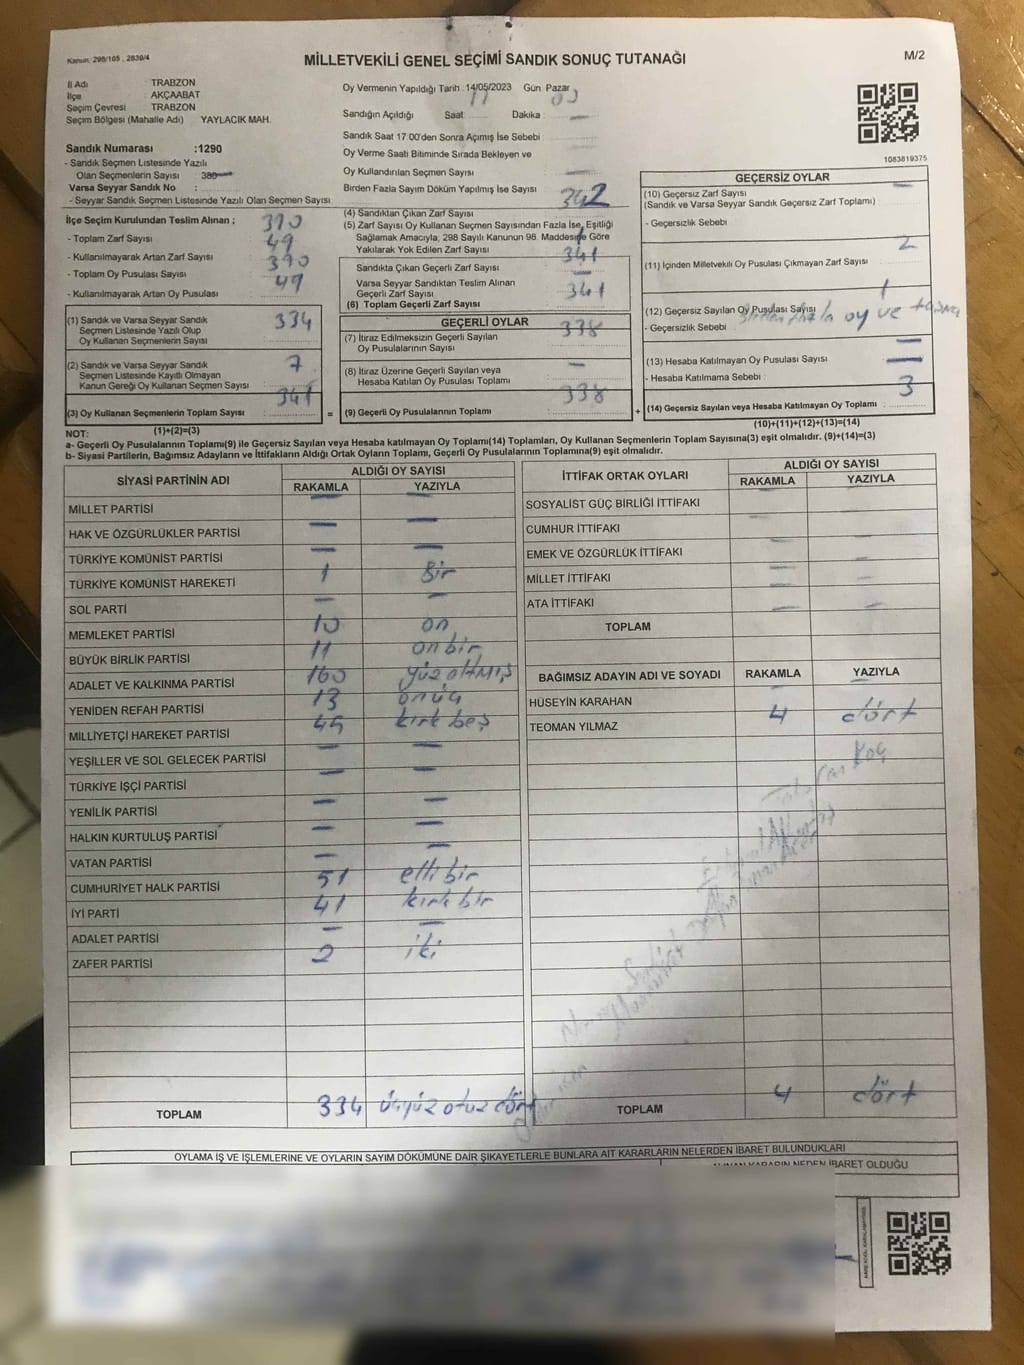 Kanun: 298/105 , 2839/4
MİLLETVEKİLİ GENEL SEÇİMİ SANDIK SONUÇ TUTANAĞI
M/2
İl Adı : TRABZON
İlçe : AKÇAABAT
Seçim Çevresi : TRABZON
Seçim Bölgesi (Mahalle Adı) YAYLACIK MAH.
Sandık Numarası :1290
- Sandık Seçmen Listesinde Yazılı
Olan Seçmenlerin Sayısı 380
Varsa Seyyar Sandık No :
- Seyyar Sandık Seçmen Listesinde Yazılı Olan Seçmen Sayısı:
Oy Vermenin Yapıldığı Tarih :14/05/2023 Gün: Pazar
Sandığın Açıldığı Saat: 17 Dakika : 00
Sandık Saat 17:00'den Sonra Açımış İse Sebebi
Oy Verme Saati Bitiminde Sırada Bekleyen ve
Oy Kullandırılan Seçmen Sayısı —
Birden Fazla Sayım Döküm Yapılmış İse Sayısı —
1083819375
İlçe Seçim Kurulundan Teslim Alınan ;
- Toplam Zarf Sayısı 390
- Kullanılmayarak Artan Zarf Sayısı 49
- Toplam Oy Pusulası Sayısı 390
- Kullanılmayarak Artan Oy Pusulası 49
(1) Sandık ve Varsa Seyyar Sandık
Seçmen Listesinde Yazılı Olup
Oy Kullanan Seçmenlerin Sayısı 334
(2) Sandık ve Varsa Seyyar Sandık
Seçmen Listesinde Kayıtlı Olmayan
Kanun Gereği Oy Kullanan Seçmen Sayısı 7
(3) Oy Kullanan Seçmenlerin Toplam Sayısı : 341
(1)+(2)=(3)
(4) Sandıktan Çıkan Zarf Sayısı 342
(5) Zarf Sayısı Oy Kullanan Seçmen Sayısından Fazla İse, Eşitliği
Sağlamak Amacıyla, 298 Sayılı Kanunun 98. Maddesine Göre
Yakılarak Yok Edilen Zarf Sayısı 1
Sandıkta Çıkan Geçerli Zarf Sayısı 341
Varsa Seyyar Sandıktan Teslim Alınan
Geçerli Zarf Sayısı —
(6) Toplam Geçerli Zarf Sayısı 341
GEÇERLİ OYLAR
(7) İtiraz Edilmeksizin Geçerli Sayılan
Oy Pusulalarının Sayısı 338
(8) İtiraz Üzerine Geçerli Sayılan veya
Hesaba Katılan Oy Pusulası Toplamı —
= (9) Geçerli Oy Pusulalarının Toplamı 338
GEÇERSİZ OYLAR
(10) Geçersiz Zarf Sayısı —
(Sandık ve Varsa Seyyar Sandık Geçersiz Zarf Toplamı)
- Geçersizlik Sebebi :
(11) İçinden Milletvekili Oy Pusulası Çıkmayan Zarf Sayısı 2
(12) Geçersiz Sayılan Oy Pusulası Sayısı 1
- Geçersizlik Sebebi : Birden fazla oy ve
(13) Hesaba Katılmayan Oy Pusulası Sayısı —
- Hesaba Katılmama Sebebi : —
+ (14) Geçersiz Sayılan veya Hesaba Katılmayan Oy Toplamı : 3
(10)+(11)+(12)+(13)=(14)
NOT:
a- Geçerli Oy Pusulalarının Toplamı(9) ile Geçersiz Sayılan veya Hesaba katılmayan Oy Toplamı(14) Toplamları, Oy Kullanan Seçmenlerin Toplam Sayısına(3) eşit olmalıdır. (9)+(14)=(3)
b- Siyasi Partilerin, Bağımsız Adayların ve İttifakların Aldığı Ortak Oyların Toplamı, Geçerli Oy Pusulalarının Toplamına(9) eşit olmalıdır.
SİYASİ PARTİNİN ADI ALDIĞI OY SAYISI
RAKAMLA YAZIYLA
MİLLET PARTİSİ — —
HAK VE ÖZGÜRLÜKLER PARTİSİ — —
TÜRKİYE KOMÜNİST PARTİSİ — —
TÜRKİYE KOMÜNİST HAREKETİ 1 Bir
SOL PARTİ — —
MEMLEKET PARTİSİ 10 on
BÜYÜK BİRLİK PARTİSİ 11 on bir
ADALET VE KALKINMA PARTİSİ 160 yüz altmış
YENİDEN REFAH PARTİSİ 13 onüç
MİLLİYETÇİ HAREKET PARTİSİ 45 kırk beş
YEŞİLLER VE SOL GELECEK PARTİSİ — —
TÜRKİYE İŞÇİ PARTİSİ — —
YENİLİK PARTİSİ — —
HALKIN KURTULUŞ PARTİSİ — —
VATAN PARTİSİ — —
CUMHURİYET HALK PARTİSİ 51 elli bir
İYİ PARTİ 41 kırk bir
ADALET PARTİSİ — —
ZAFER PARTİSİ 2 iki
TOPLAM 334 üçyüz otuz dört
İTTİFAK ORTAK OYLARI ALDIĞI OY SAYISI
RAKAMLA YAZIYLA
SOSYALİST GÜÇ BİRLİĞİ İTTİFAKI — —
CUMHUR İTTİFAKI — —
EMEK VE ÖZGÜRLÜK İTTİFAKI — —
MİLLET İTTİFAKI — —
ATA İTTİFAKI — —
TOPLAM
BAĞIMSIZ ADAYIN ADI VE SOYADI RAKAMLA YAZIYLA
HÜSEYİN KARAHAN
TEOMAN YILMAZ 4 dört
TOPLAM 4 dört
OYLAMA İŞ VE İŞLEMLERİNE VE OYLARIN SAYIM DÖKÜMÜNE DAİR ŞİKAYETLERLE BUNLARA AİT KARARLARIN NELERDEN İBARET BULUNDUKLARI
ALINAN KARARIN NEDEN İBARET OLDUĞU